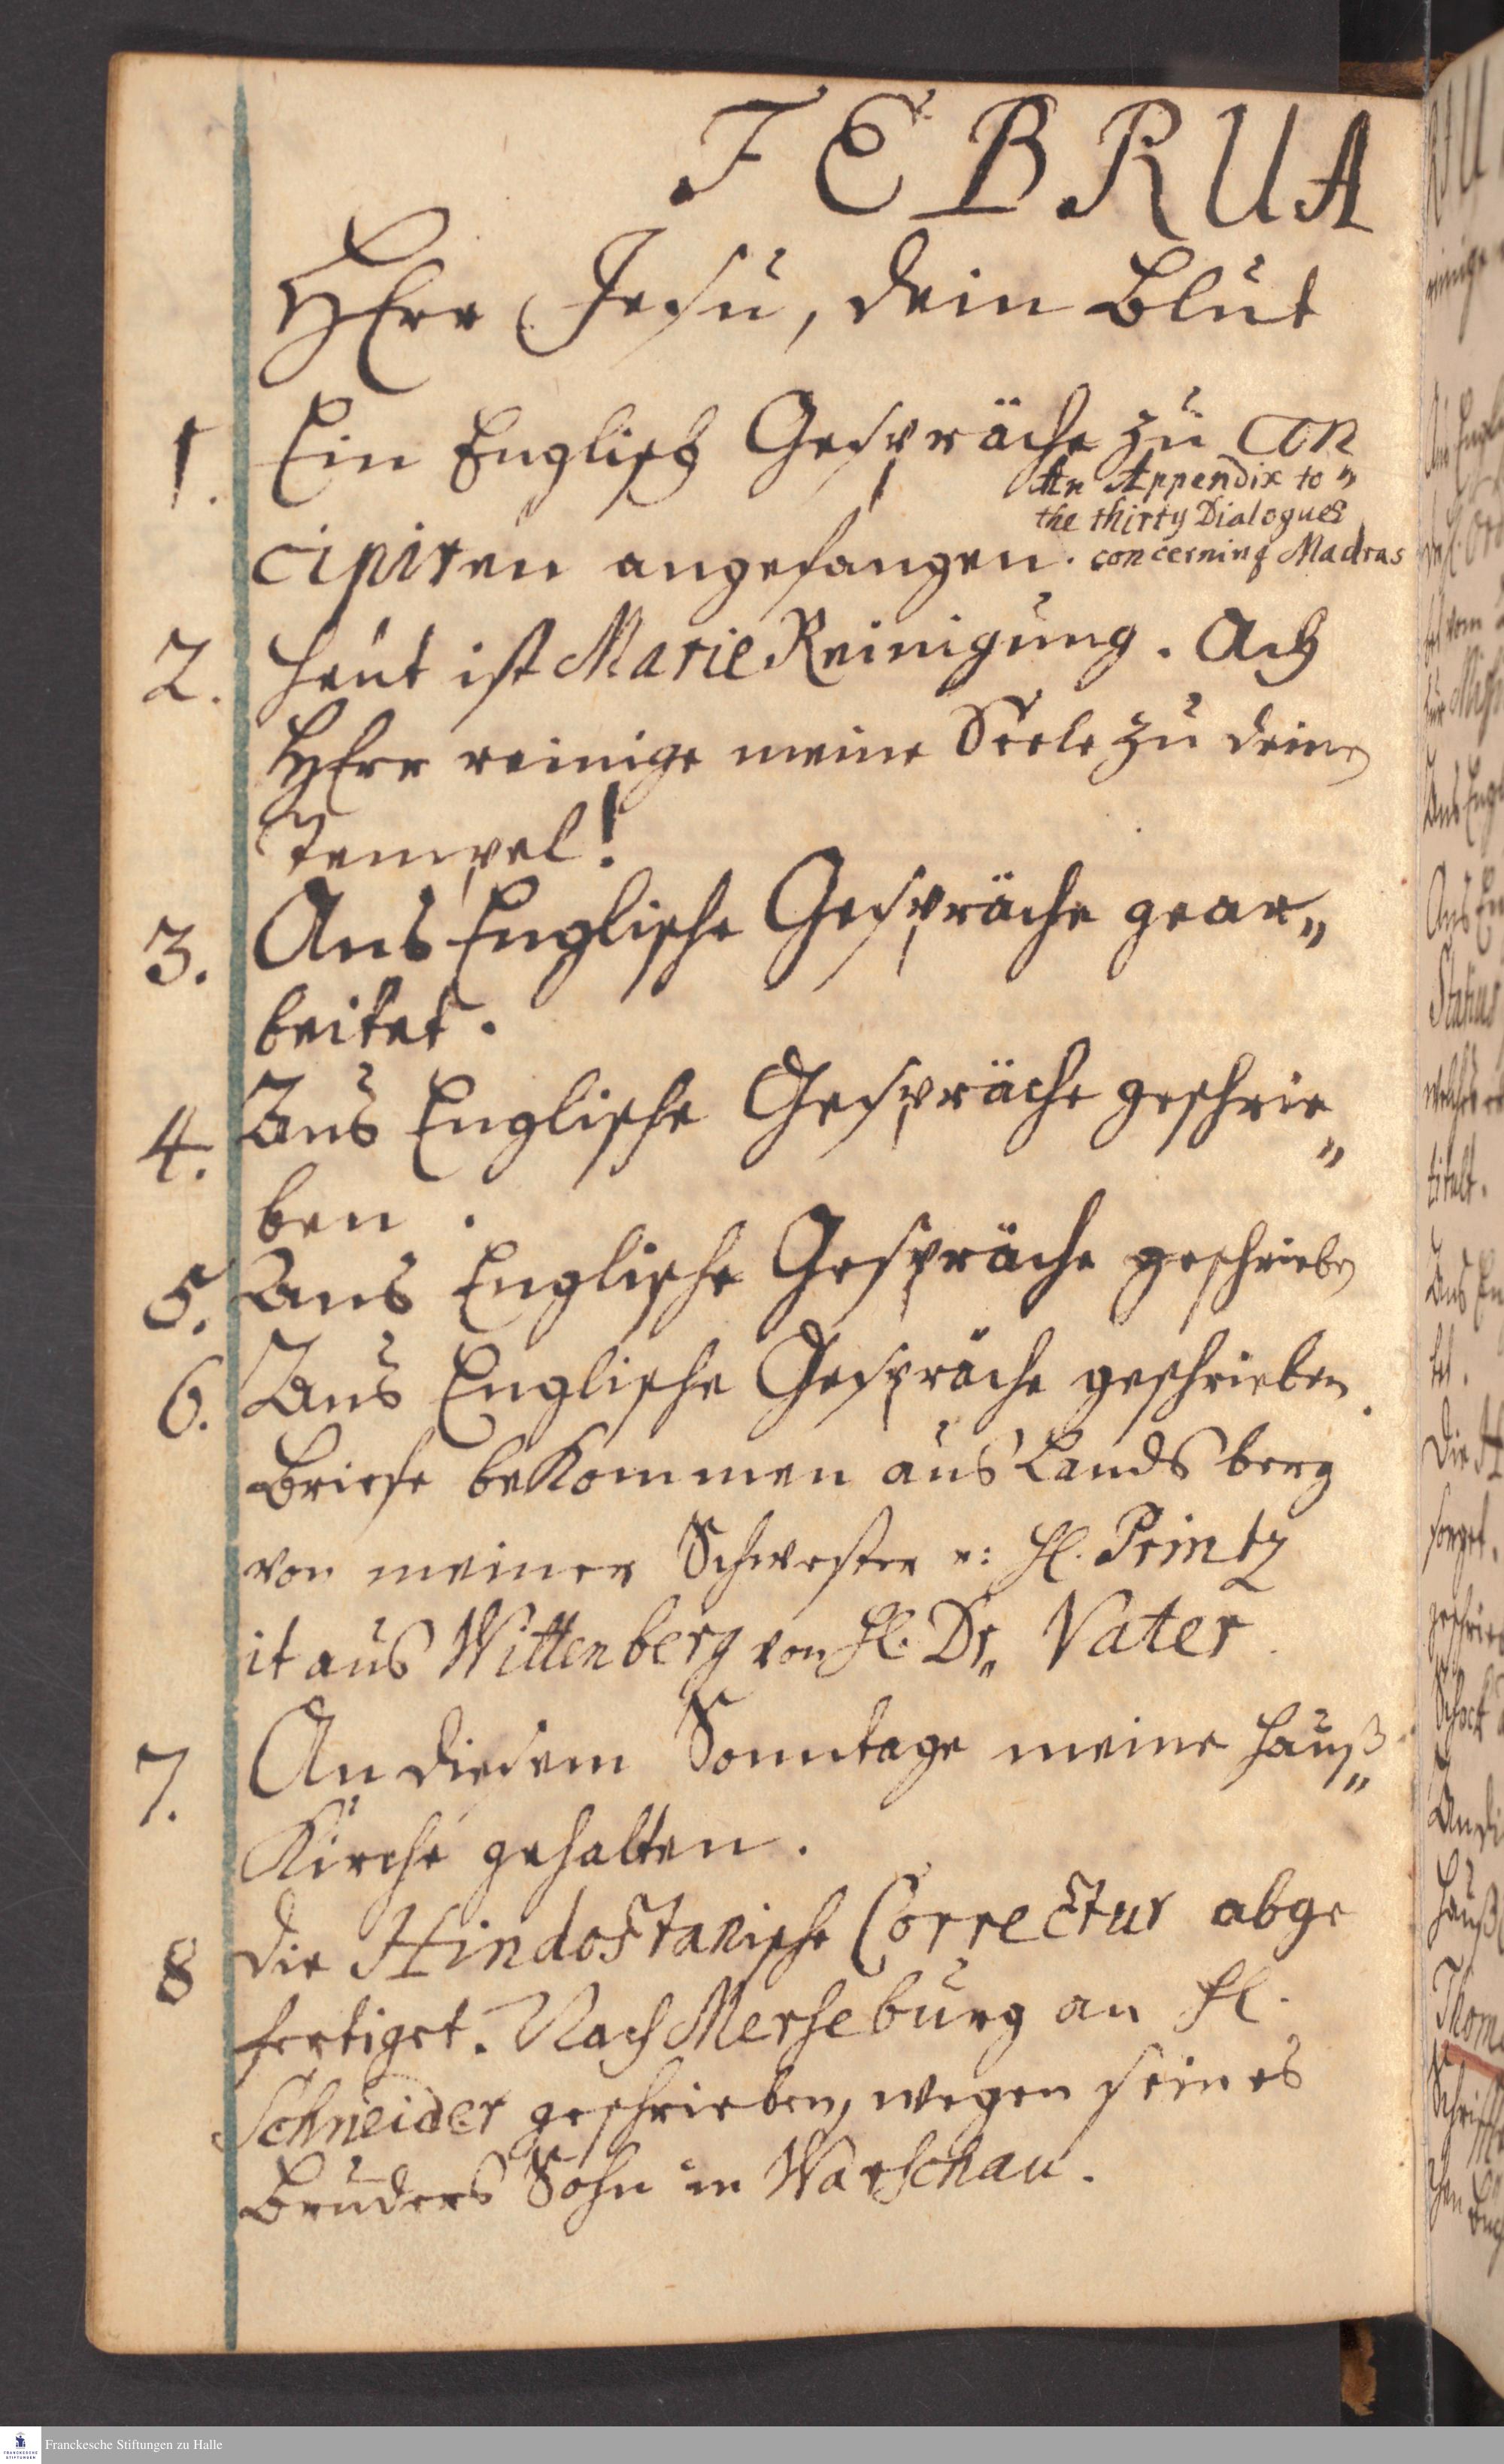 FEBRUA
HErr Jesu, dein Blut
1. Ein Englisch Gespräche zu con
An Appendix to "
the thirty Dialogues
cipiren angefangen. concerning Madras
2. Heut ist Mariä Reinigung. Ach
HErr reinige meine Seele zu deinen
Tempel!
3. Ans Englische Gespräche gear„
beitet.
4. Ans Englische Gespräche geschrie„
ben.
5. Ans Englische Gespräche geschrieben
6. Ans Englische Gespräche geschrieben.
Briefe bekommen aus Landsberg
von meiner Schwester u: H. Printz
it aus Wittenberg von H. Dr. Vater.
7. An diesem Sonntage meine Hauß„
Kirche gehalten.
8 Die Hindostanische Correctur abge
fertiget. Nach Merseburg an H.
Schneider geschrieben, wegen seines
Bruders Sohn in Warschau.
Franckesche Stiftungen zu Halle